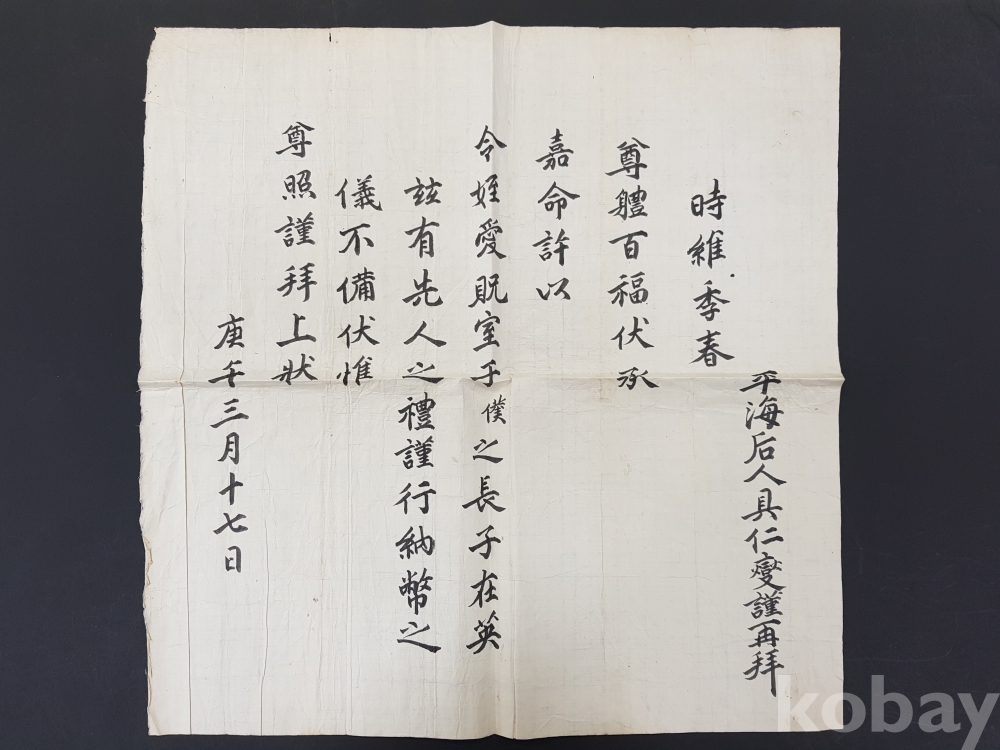 平海后人具仁燮謹再拜
時維季春
尊軆百福伏承
嘉命許以
令姪愛貺室于僕之長子在英
玆有先人之禮謹行納幣之
儀不備伏惟
尊照謹拜上狀
庚午三月十七日
kobay